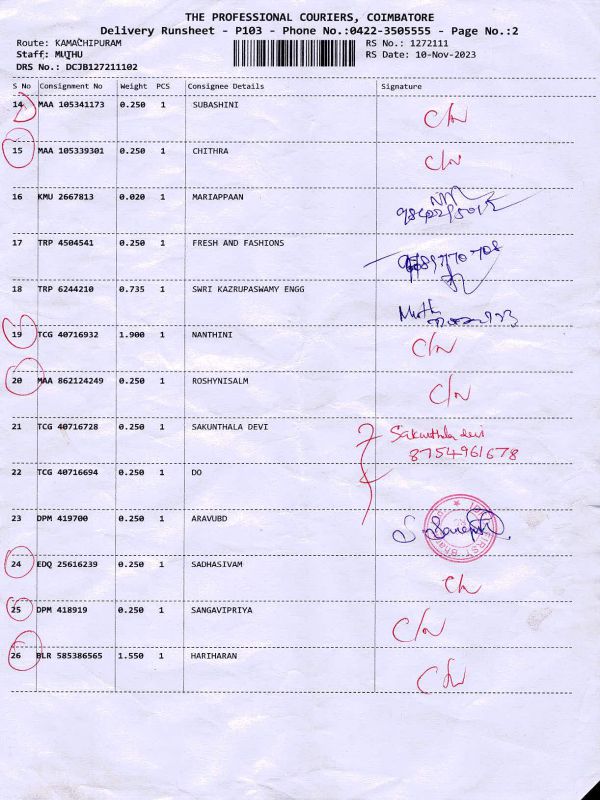 THE PROFESSIONAL COURIERS, COIMBATORE
Delivery Runsheet - P103 - Phone No.:0422-3505555 - Page No.:2
Route: KAMACHIPURAM RS No.: 1272111
Staff: MUTHU RS Date: 10-Nov-2023
DRS No.: DCJB127211102
S No Consignment No Weight PCS Consignee Details Signature
14 MAA 105341173 0.250 1 SUBASHINI
15 MAA 105339301 0.250 1 CHITHRA
16 KMU 2667813 0.020 1 MARIAPPAAN
17 TRP 4504541 0.250 1 FRESH AND FASHIONS
18 TRP 6244210 0.735 1 SWRI KAZRUPASWAMY ENGG
19 TCG 40716932 1.900 1 NANTHINI
20 MAA 862124249 0.250 1 ROSHYNISALM
21 TCG 40716728 0.250 1 SAKUNTHALA DEVI Sakunthala devi
8754961678
22 TCG 40716694 0.250 1 DO
23 DPM 419700 0.250 1 ARAVUBD
24 EDQ 25616239 0.250 1 SADHASIVAM
25 DPM 418919 0.250 1 SANGAVIPRIYA
26 BLR 585386565 1.550 1 HARIHARAN